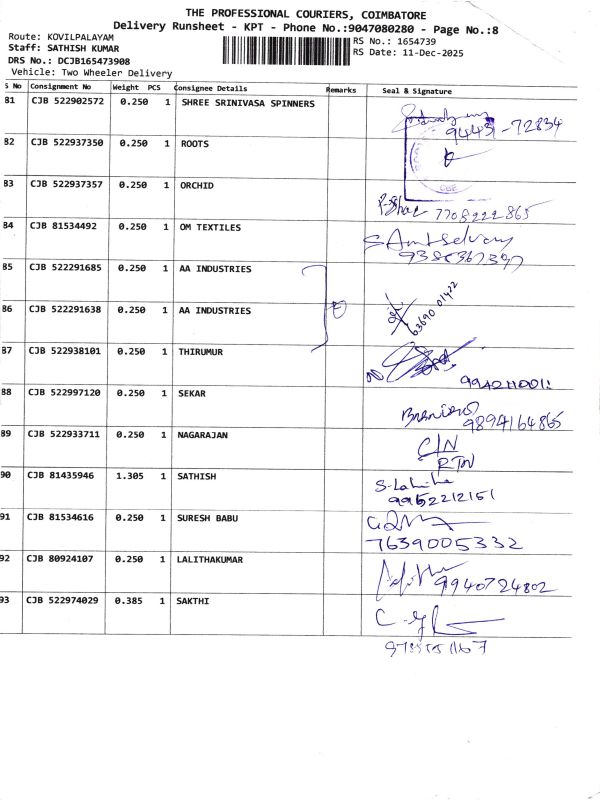 THE PROFESSIONAL COURIERS, COIMBATORE
Delivery Runsheet - KPT - Phone No.:9047080280 - Page No.:8
Route: KOVILPALAYAM
Staff: SATHISH KUMAR
DRS No.: DCJB165473908
Vehicle: Two Wheeler Delivery
RS No.: 1654739
RS Date: 11-Dec-2025
S No Consignment No Weight PCS Consignee Details Remarks Seal & Signature
81 CJB 522902572 0.250 1 SHREE SRINIVASA SPINNERS
94431-72834
82 CJB 522937350 0.250 1 ROOTS
CBE
83 CJB 522937357 0.250 1 ORCHID
7708222865
84 CJB 81534492 0.250 1 OM TEXTILES
85 CJB 522291685 0.250 1 AA INDUSTRIES
86 CJB 522291638 0.250 1 AA INDUSTRIES
63690 01422
87 CJB 522938101 0.250 1 THIRUMUR
88 CJB 522997120 0.250 1 SEKAR
9894164865
89 CJB 522933711 0.250 1 NAGARAJAN
C/N
RTN
90 CJB 81435946 1.305 1 SATHISH
9952212151
91 CJB 81534616 0.250 1 SURESH BABU
7639005332
92 CJB 80924107 0.250 1 LALITHAKUMAR
9940724802
93 CJB 522974029 0.385 1 SAKTHI